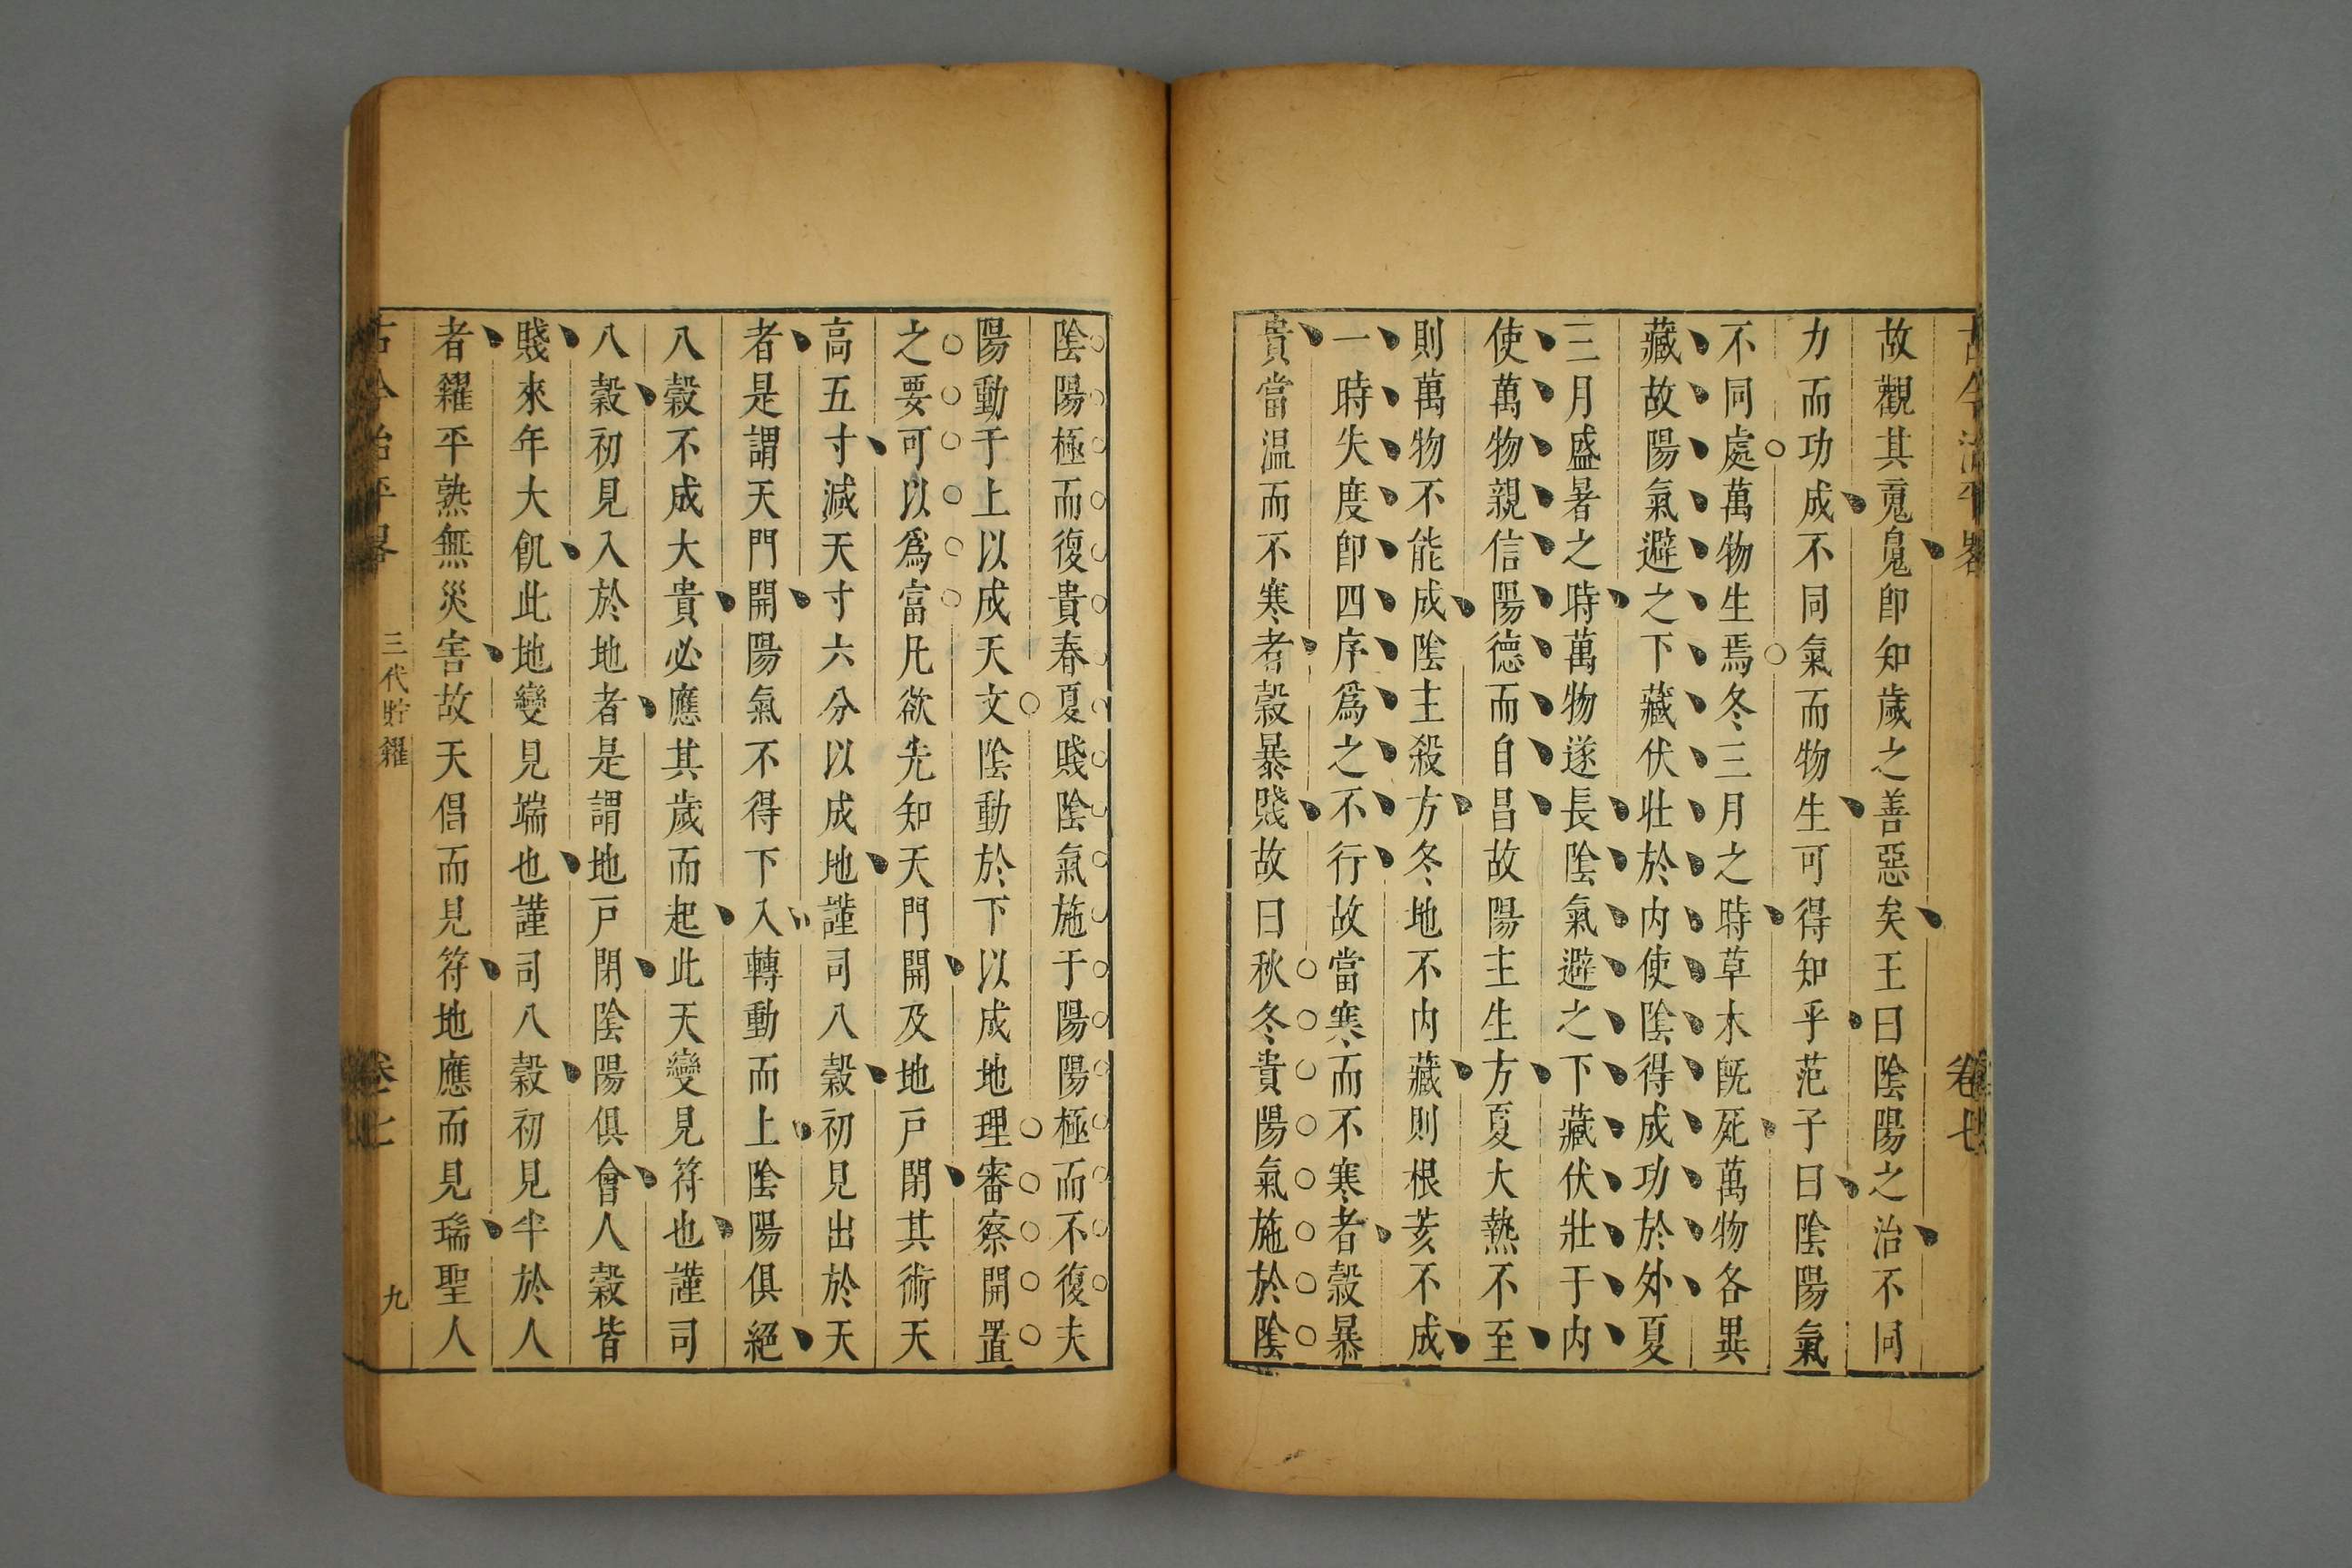 古今治平畧
卷七
故觀其䰟䰟即知歲之善惡矣王曰陰陽之治不同
力而功成不同氣而物生可得知乎范子曰陰陽氣
不同處萬物生焉冬三月之時草木旣死萬物各異
藏故陽氣避之下藏伏壯於內使陰得成功於外夏
三月盛暑之時萬物遂長陰氣避之下藏伏壯于內
使萬物親信陽德而自昌故陽主生方夏大熱不至
則萬物不能成陰主殺方冬地不內藏則根荄不成
一時失度即四序爲之不行故當寒而不寒者穀暴
貴當温而不寒者穀暴賤故曰秋冬貴陽氣施於陰
陰陽極而復貴春夏賤陰氣施于陽陽極而不復夫
陽動于上以成天文陰動於下以成地理審察開置
之要可以爲富凡欲先知天門開及地戸閉其術天
高五寸減天寸六分以成地謹司八穀初見出於天
者是謂天門開陽氣不得下入轉動而上陰陽俱絕
八穀不成大貴必應其歲而起此天變見符也謹司
八穀初見入於地者是謂地戸閉陰陽俱會人穀皆
賤來年大飢此地變見端也謹司八穀初見半於人
者糴平熟無災害故天倡而見符地應而見瑞聖人
古今治平畧
三代貯糴
卷七
九